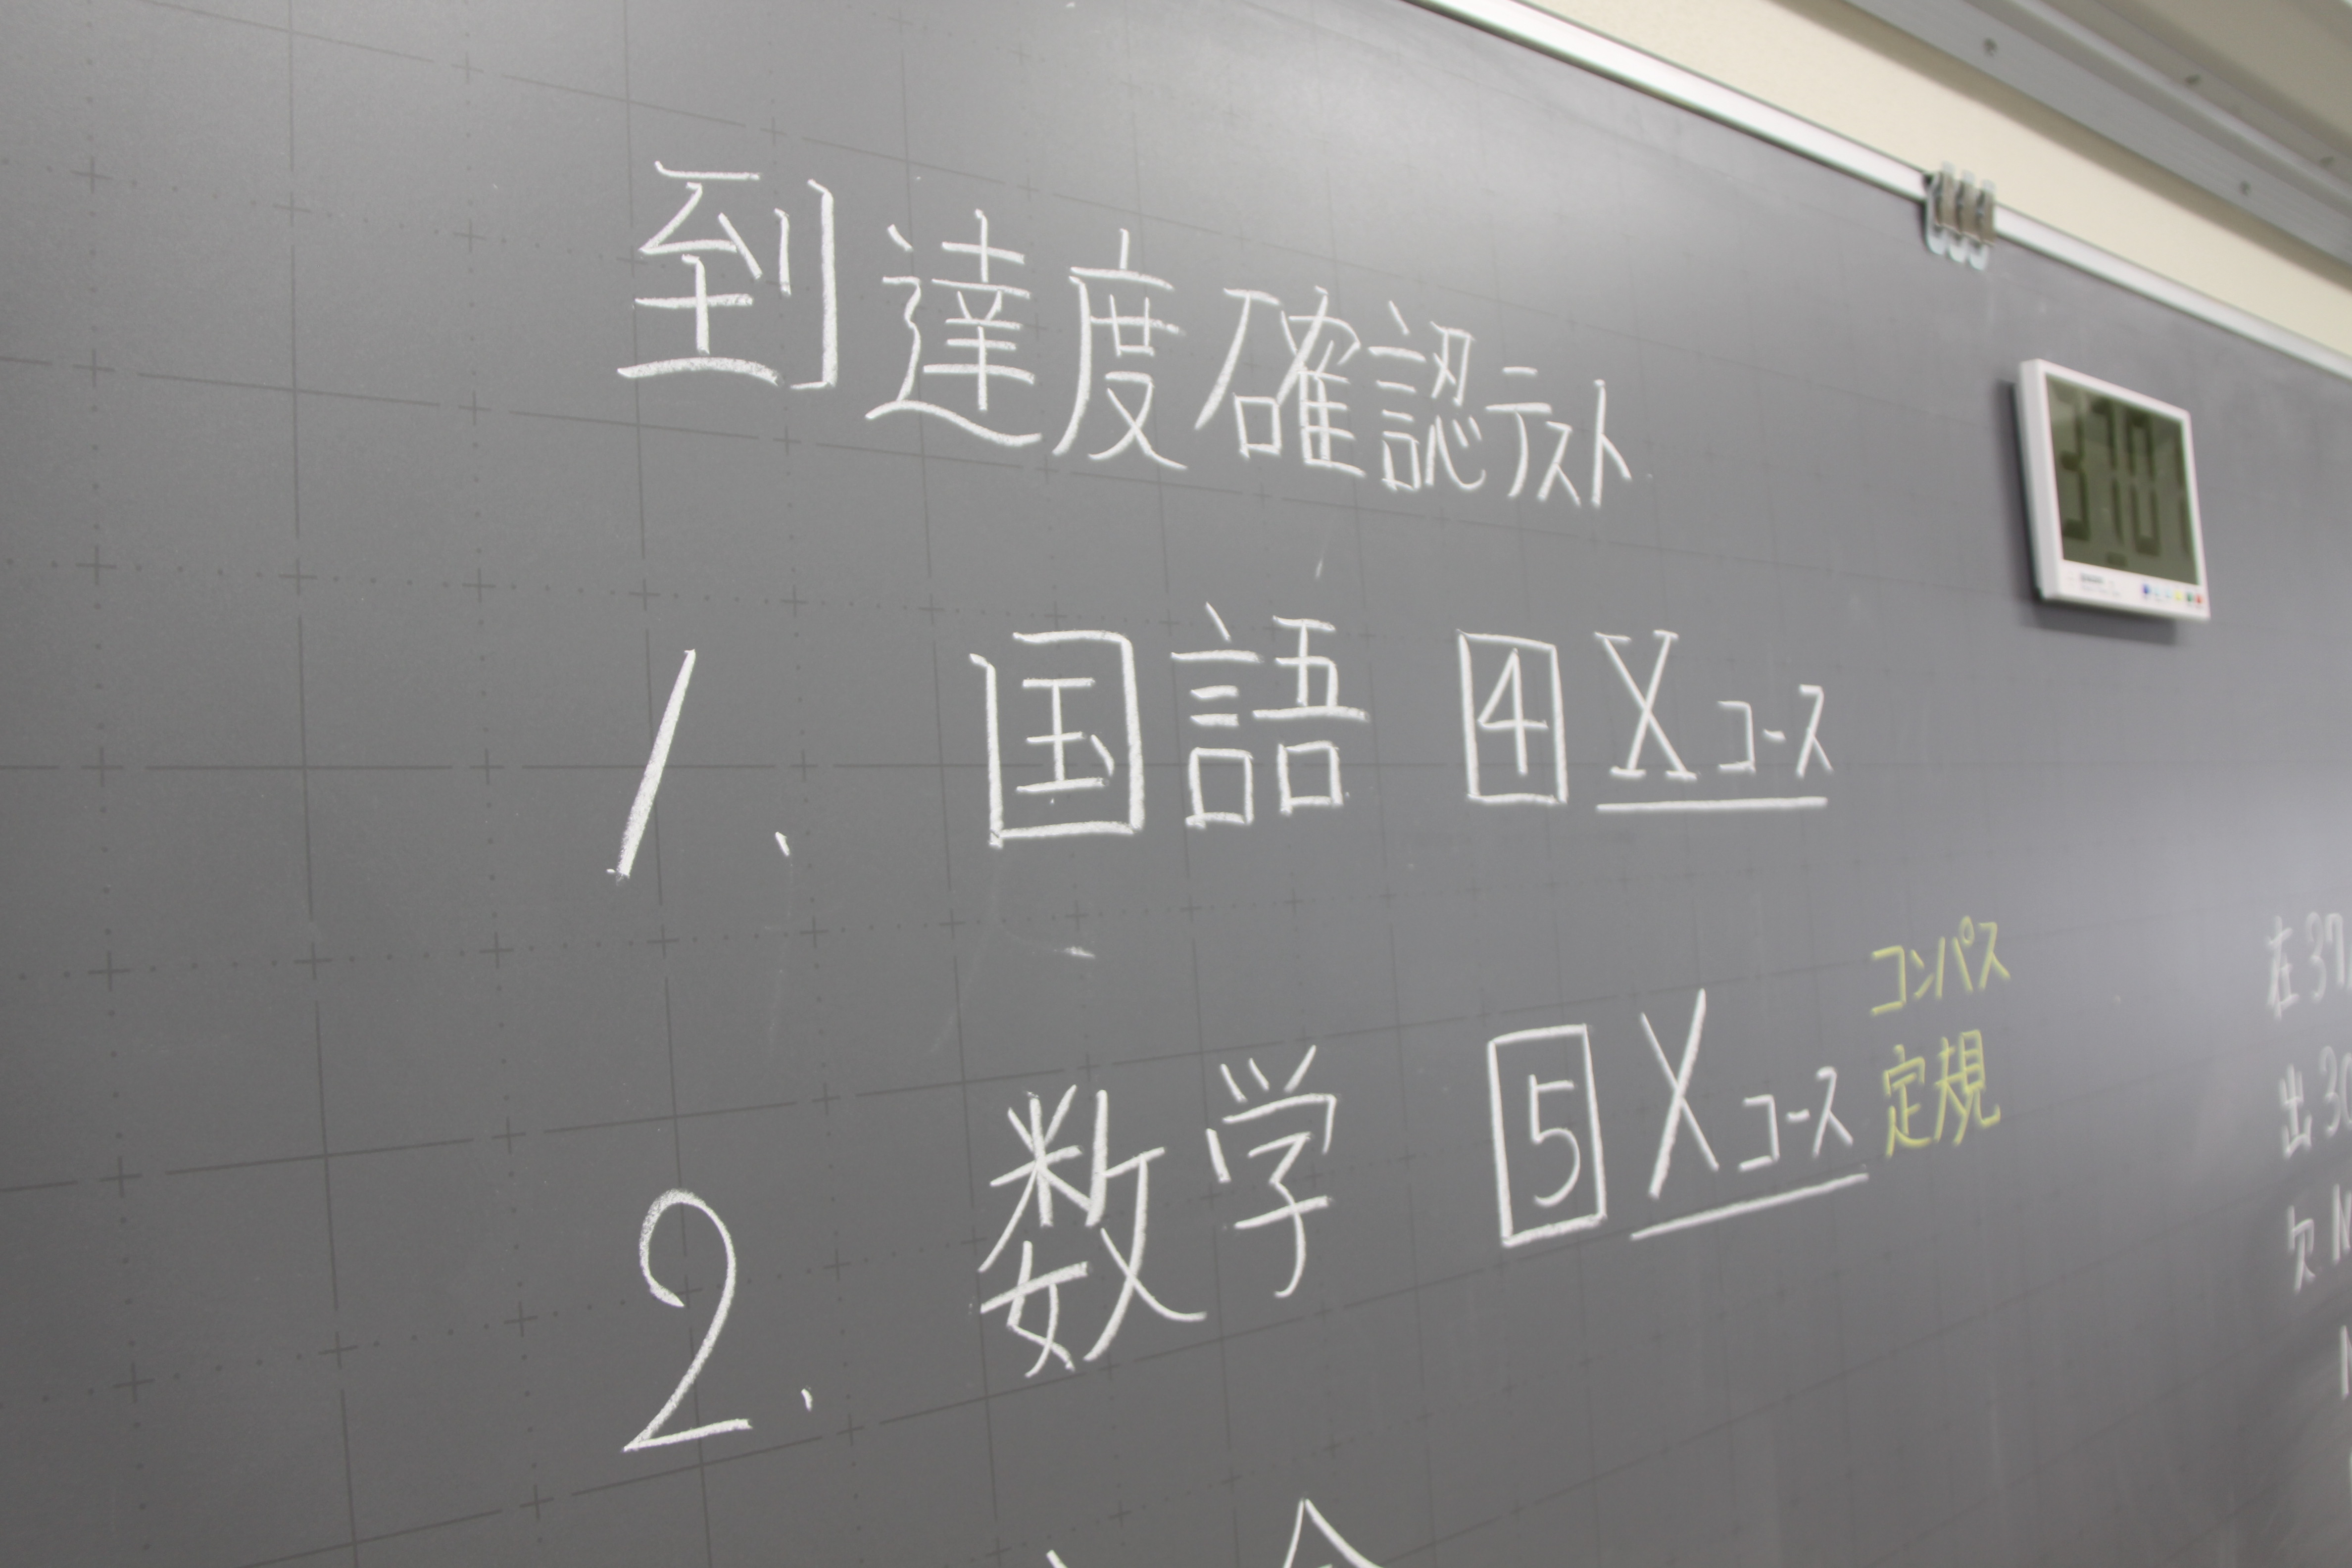 到達度確認テスト
1. 国語 4 Xコース
2. 数学 5 Xコース
コンパス
定規
37:01
在 37
出 30
欠